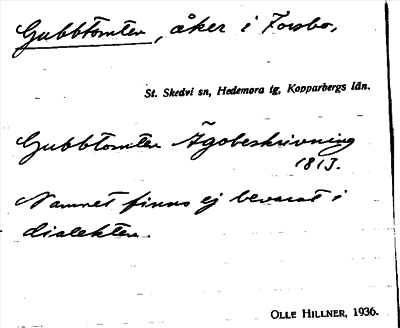 Gubbtomten, åker i Forsbo,
St. Skedvi sn, Hedemora tg, Kopparbergs län.
Gubbtomten Ägobeskrivning
1813.
Namnet finns ej bevarat i
dialekten.
OLLE HILLNER, 1936.